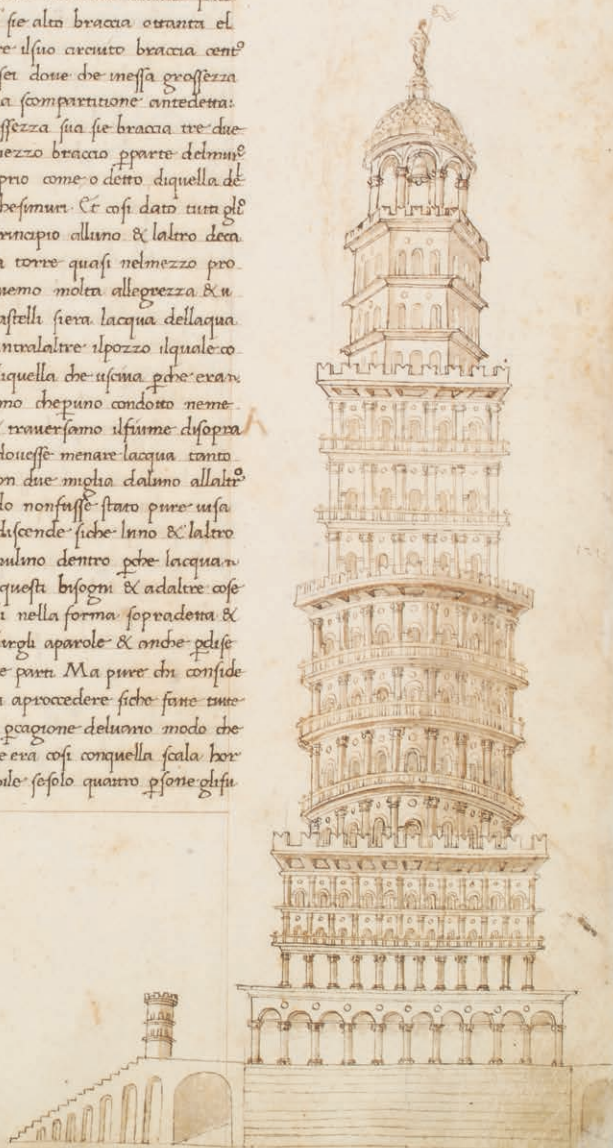 sie alto braccia ottanta el
e il suo circuito braccia centº
sei doue che inessa grossezza
a scompartitione antedetta:
ssezza sua sie braccia tre due
mezzo braccio ꝑparte delmurº
prio come o detto diquella de
hesimuri. Et cosi dato tutti gli
rincipio alluno & laltro deca
a torre quasi nelmezzo pro
uemo molta allegrezza & u
astelli siera lacqua dellaqua
ntralaltre ilpozzo ilquale co
iquella che usciua ꝑche eran
mo cheꝑuno condotto neme
trauersamo ilfiume disopra
douesse menare lacqua tanto
on due miglia daluno allaltrº
lo nonfusse stato pure uisa
discende siche luno & laltro
mulino dentro ꝑche lacqua n
questi bisogni & adaltre cose
i nella forma sopradetta &
irgli aparole & anche ꝑdise
e parti Ma pure chi conside
a aprocedere siche fatte tutte
ꝑcagione deluario modo che
e era cosi conquella scala hor
ile sesolo quattro ꝑsone glifu